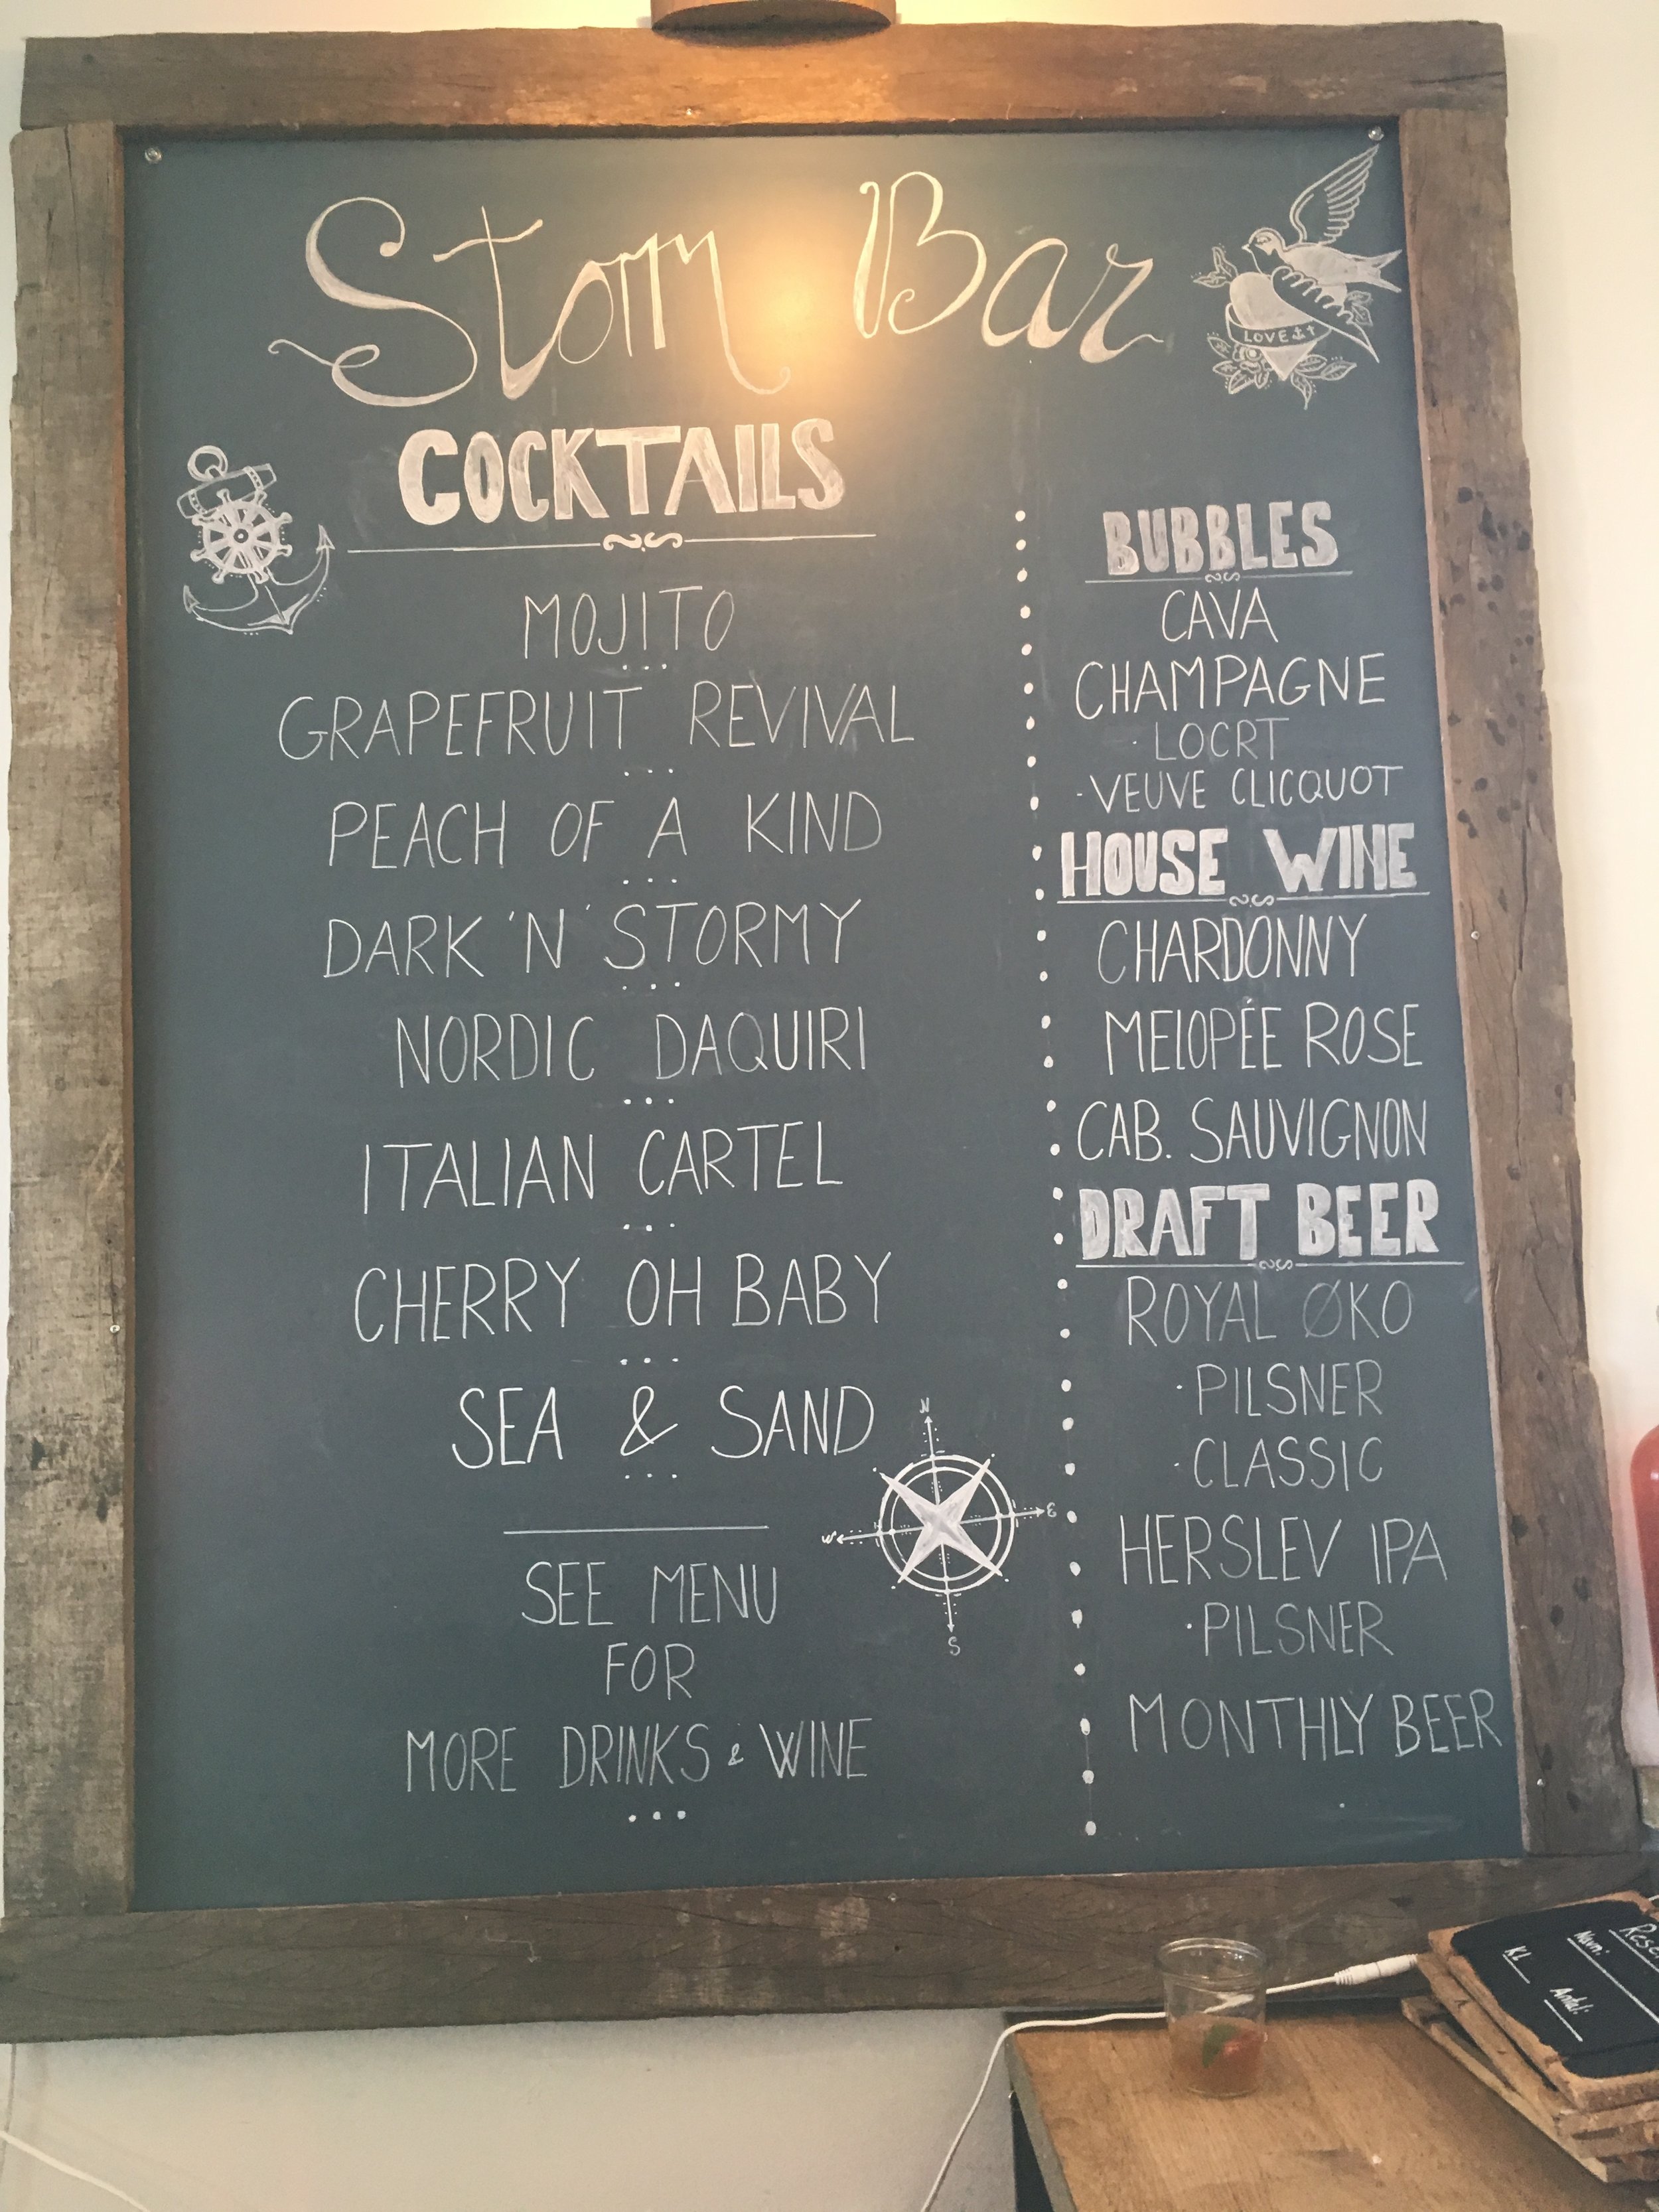 Storm Bar
LOVE
COCKTAILS
MOJITO
GRAPEFRUIT REVIVAL
PEACH OF A KIND
DARK 'N' STORMY
NORDIC DAQUIRI
ITALIAN CARTEL
CHERRY OH BABY
SEA & SAND
N
W E
S
SEE MENU
FOR
MORE DRINKS & WINE
BUBBLES
CAVA
CHAMPAGNE
· LOCRT
·VEUVE CLICQUOT
HOUSE WINE
CHARDONNY
MELOPÉE ROSE
CAB. SAUVIGNON
DRAFT BEER
ROYAL ØKO
·PILSNER
·CLASSIC
HERSLEV IPA
·PILSNER
MONTHLY BEER
Navn:
Kl
Antal: